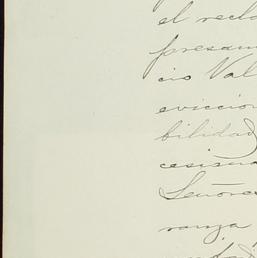 el recla
presam
cio Val
evicción
bilidad
cesism
Señores
ranza